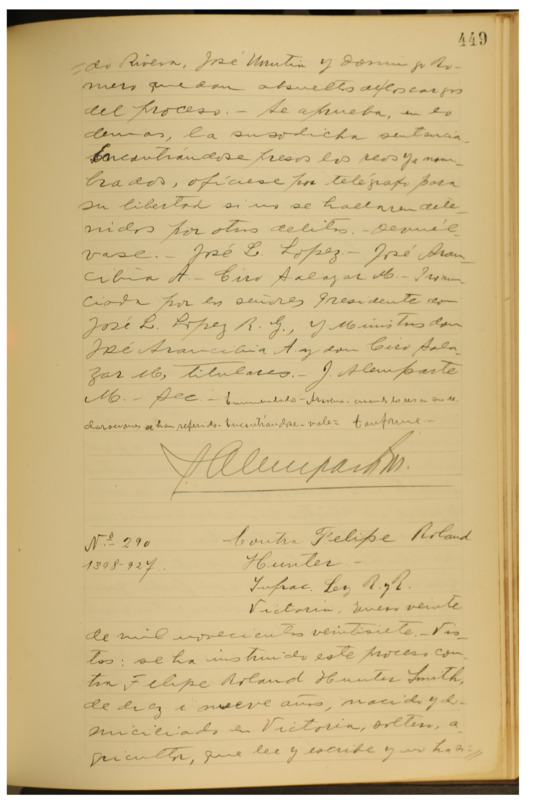 449
do Rivera, José Urrutia y Domingo Ro-
mero quedan absueltos de los cargos
del proceso.- Se aprueba, en lo
demas, la susodicha sentencia.
Encontrándose presos los reos ya nom-
brados, ofíciese por telégrafo para
su libertad si no se hallaren dete-
nidos por otros delitos.- Devuél-
vase.- José L. Lopez- José Aran-
cibia A- Ciro Salazar M.- Pronun-
ciada por los señores Presidente don
José L. Lopez R. G., y Ministros don
José Arancibia A y don Ciro Sala-
zar M, titulares.- J. Alemparte
M.- Sec.- Enmendado-
se han referido. Encontrándose- vale= Conforme-
J Alemparte M.
Nº 290 Contra Felipe Roland
1398-927. Hunter-
Infrac. Ley R. y R.
Victoria, enero veinte
de mil novecientos veintisiete.- Vis-
tos: se ha instruido este proceso con-
tra Felipe Roland Hunter Smith,
de diez i nueve años, nacido y do-
miciliado en Victoria, soltero, a-
gricultor, que lee y escribe y no ha si=